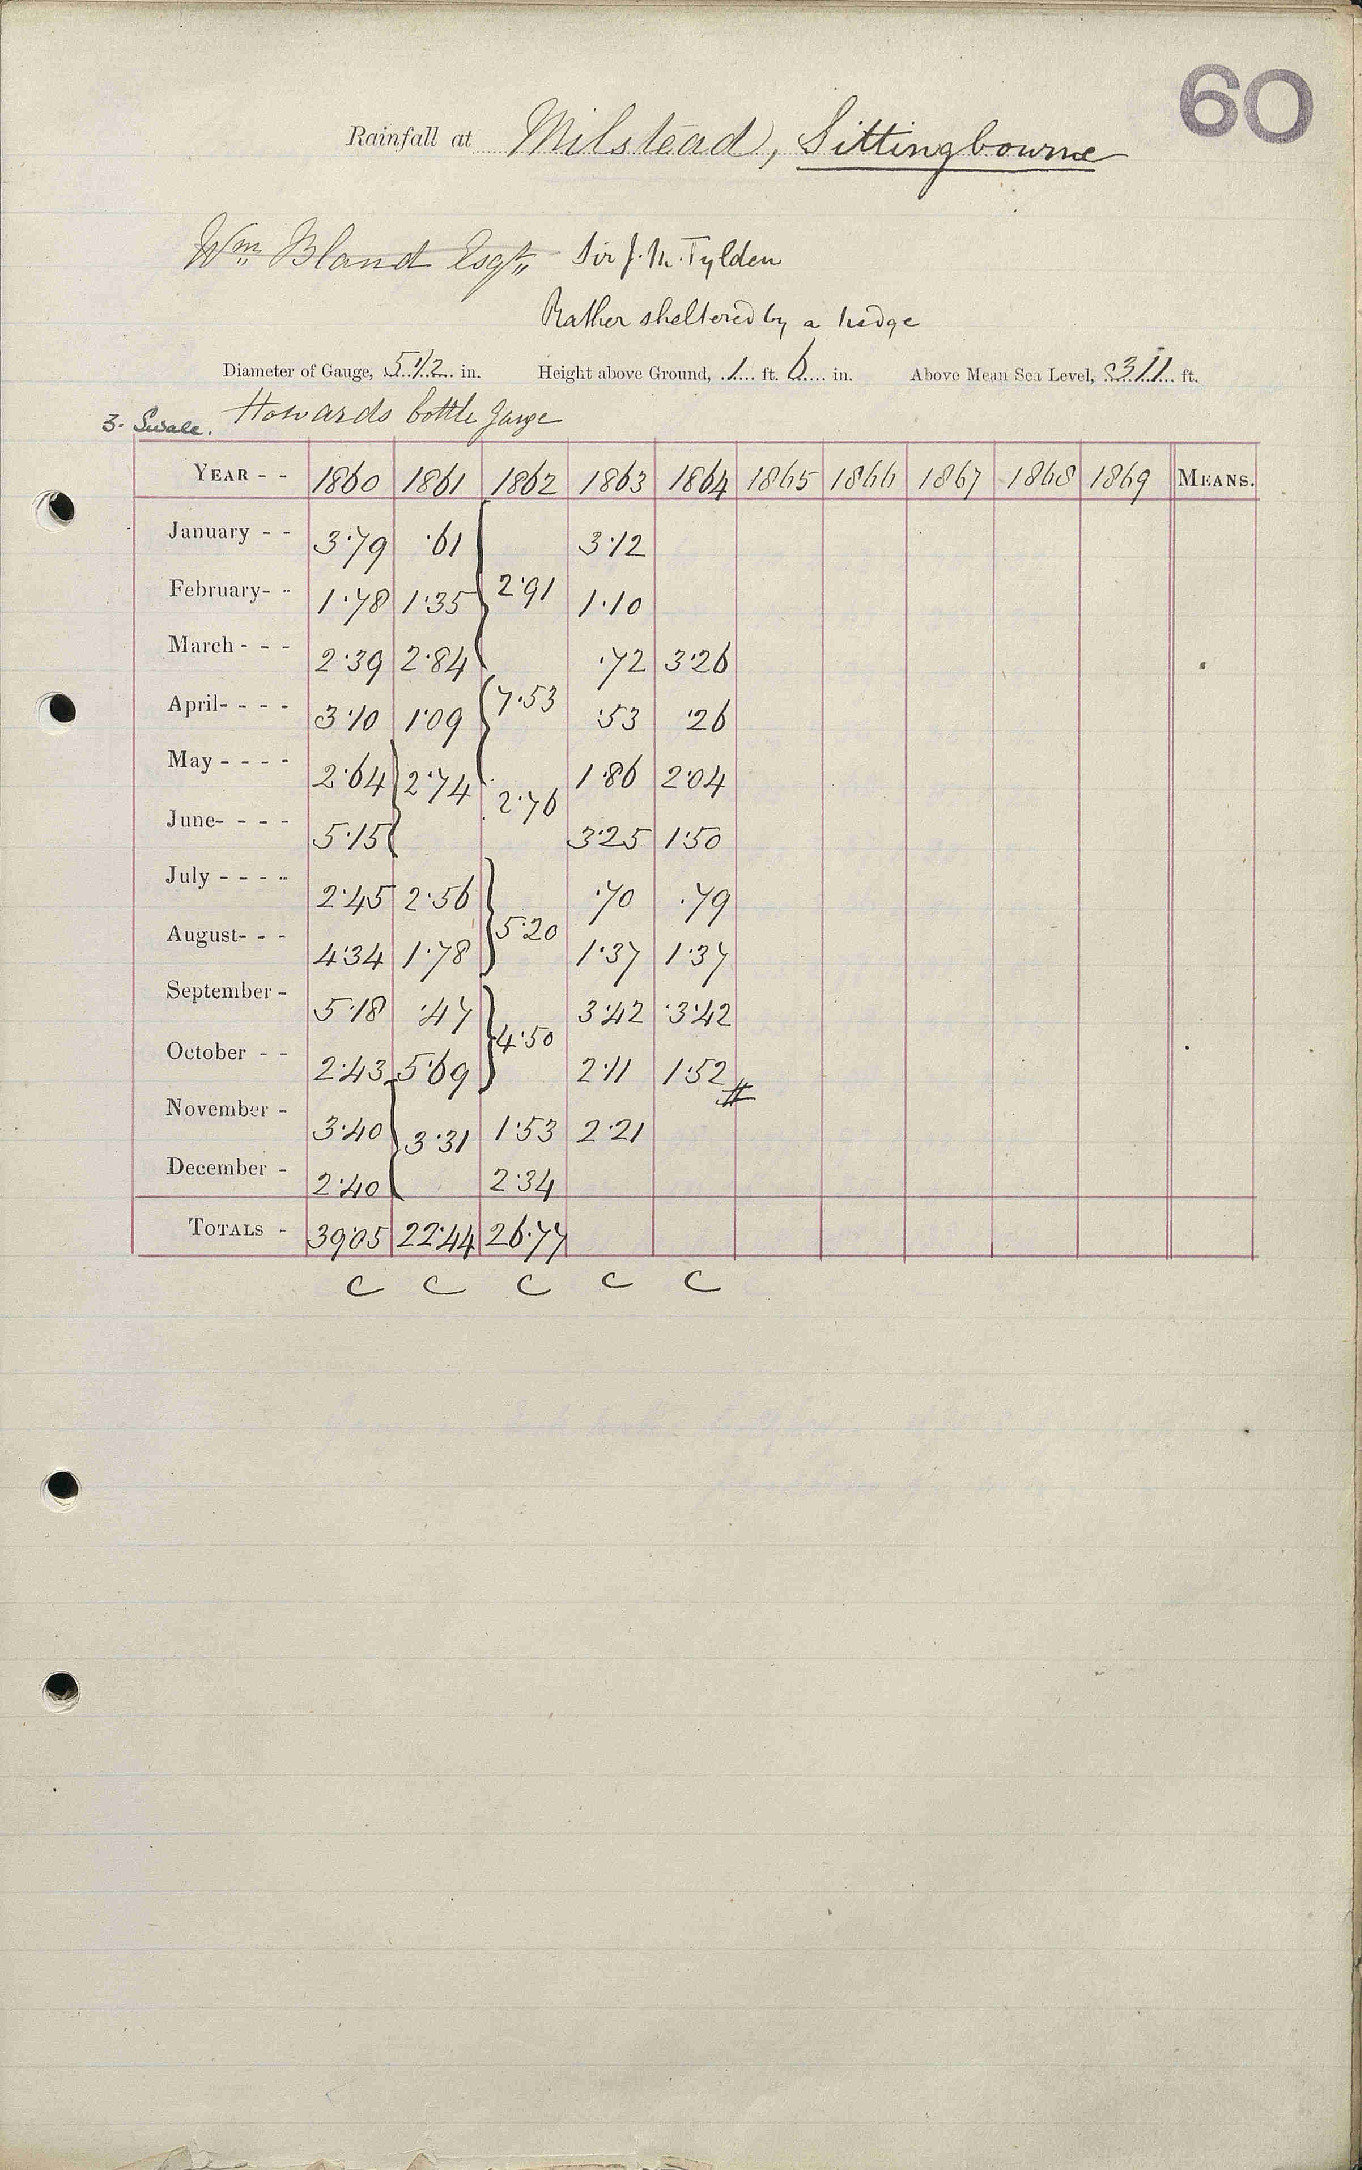 60
Rainfall at Milstead, Sittingbourne
Wm Bland Esqr Sir J. M. Tylden
Rather sheltered by a hedge
Diameter of Gauge, 5 1/2 in. Height above Ground, 1 ft. 6 in. Above Mean Sea Level, 311 ft.
3. Swale. Howards bottle gauge
YEAR - - 1860 1861 1862 1863 1864 1865 1866 1867 1868 1869 MEANS.
January - - 3·79 ·61 3·12
February- - 1·78 1·35 2·91 1·10
March - - - 2·39 2·84 ·72 3·26
April- - - - 3·10 1·09 7·53 ·53 ·26
May - - - - 2·64 2·74 1·86 2·04
June- - - - 5·15 2·76 3·25 1·50
July - - - - 2·45 2·56 ·70 ·79
August- - - 4·34 1·78 5·20 1·37 1·37
September - 5·18 ·47 3·42 3·42
October - - 2·43 5·69 4·50 2·11 1·52
November - 3·40 3·31 1·53 2·21
December - 2·40 2·34
TOTALS - 39·05 22·44 26·77
C C C C C